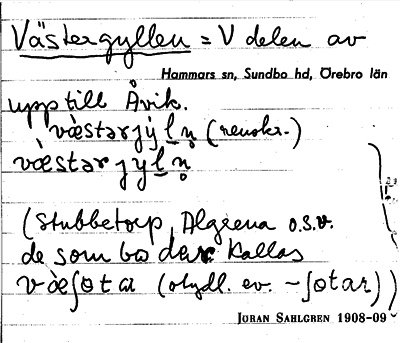 Västergyllen = V delen av
Hammars sn, Sundbo hd, Örebro län
upp till Åvik.
væ̀stərjýl̲n̥ (renskr.)
væ̀stərjýl̲n̥
(Stubbetorp, Algrena o.s.v.
de som bo där kallas
væ̀ʃøtar (otydl. ev. -ʃøtar))
JÖRAN SAHLGREN 1908-09